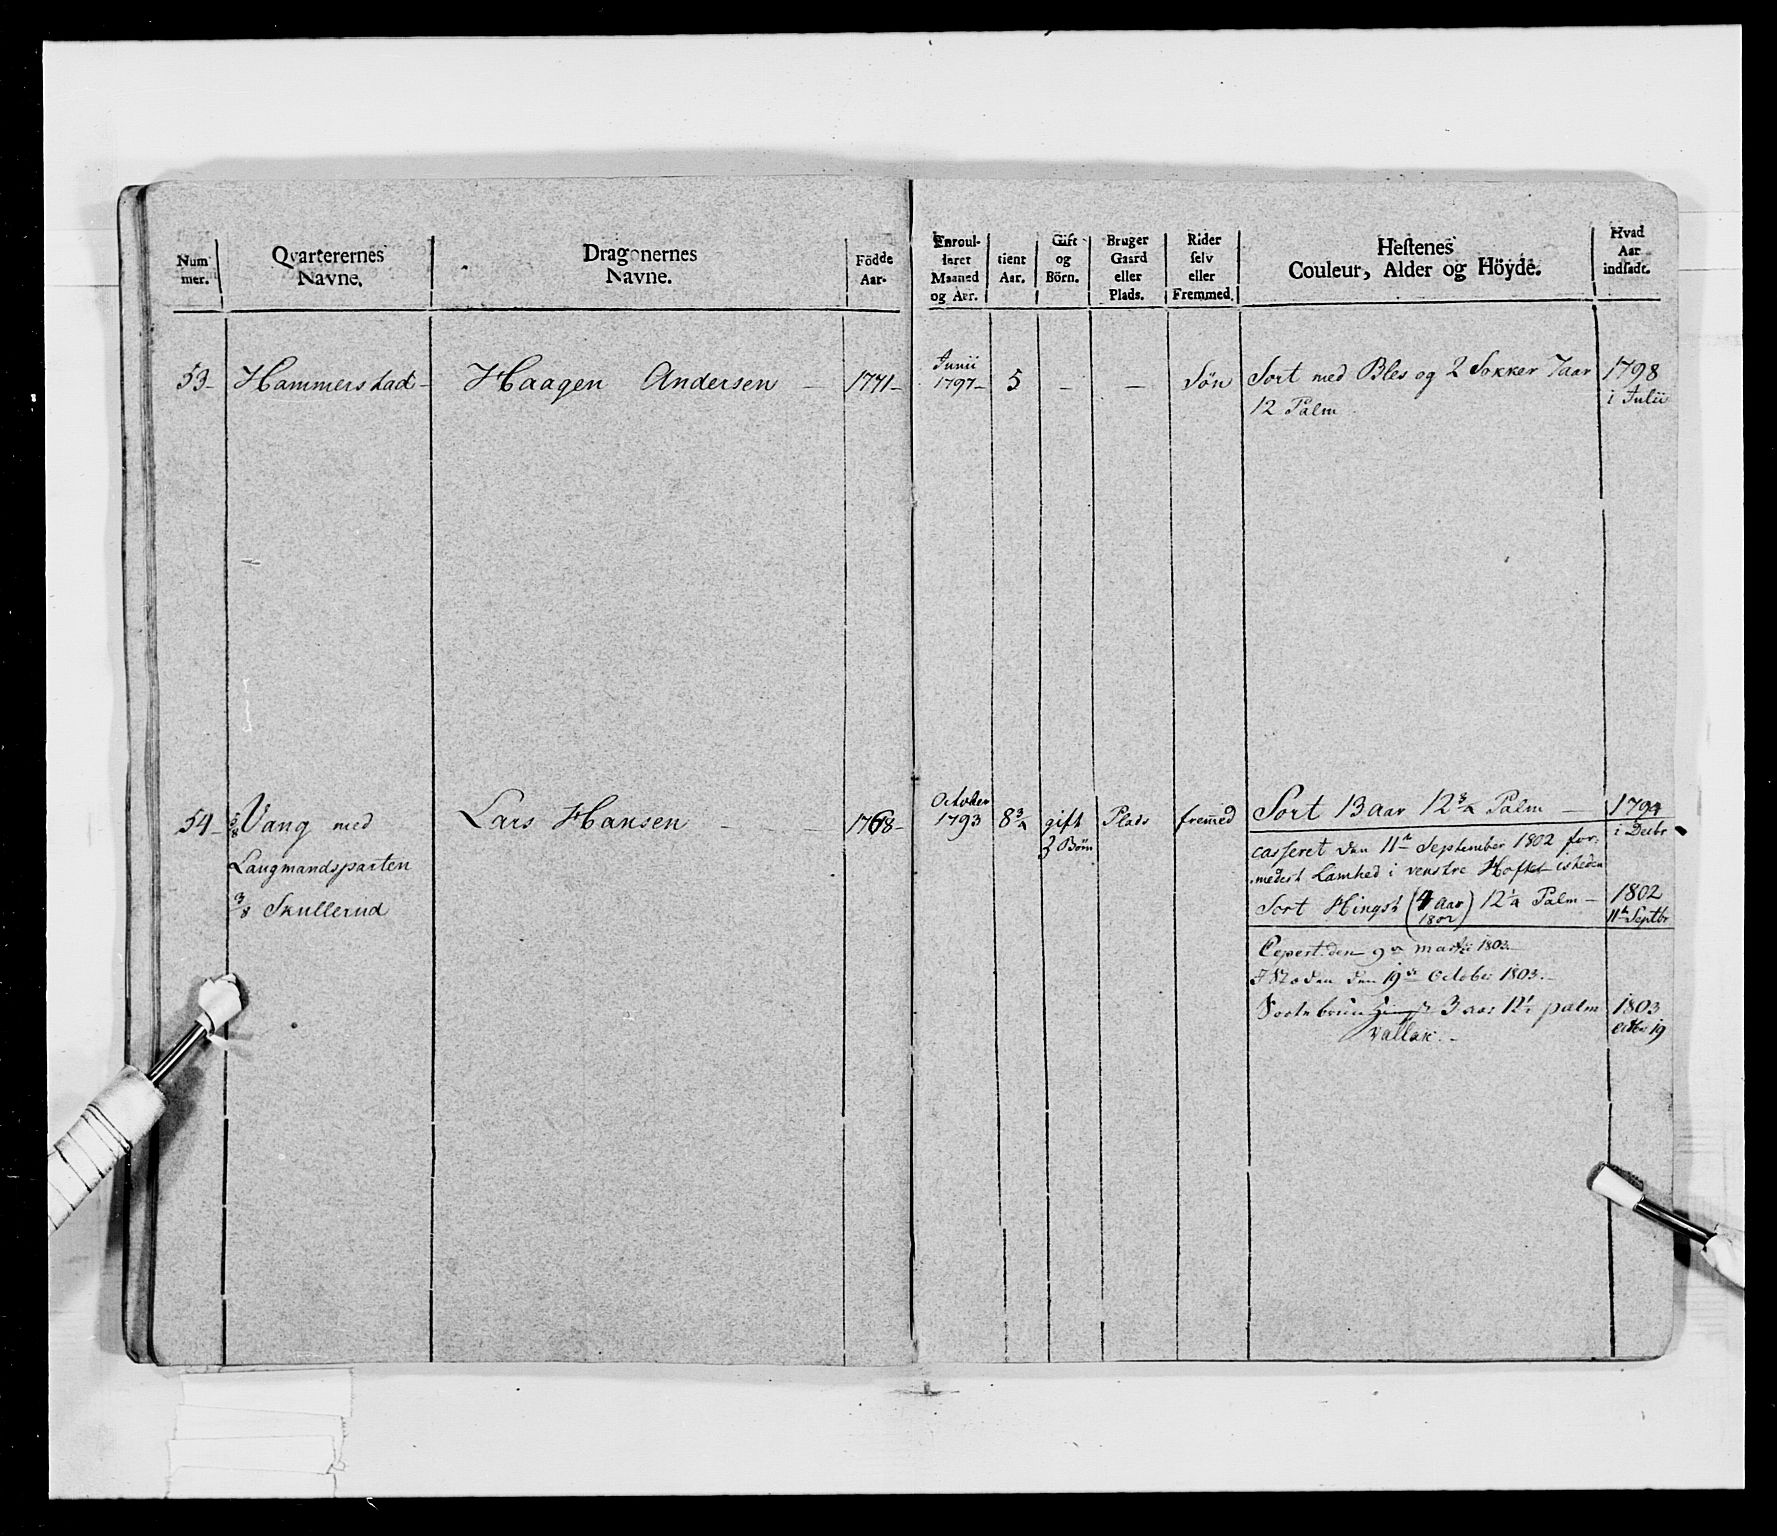 Num
mer.
Qvarterernes
Navne.
Dragonernes
Navne.
Födde
Aar.
Enroul-
leret
Maaned
og Aar.
tient
Aar.
Gift
og
Börn.
Bruger
Gaard
eller
Plads.
Rider
selv
eller
Fremmed.
Hestenes
Couleur, Alder og Höyde.
Hvad
Aar
indsadt.
53- Hammerstad- Haagen Andersen - 1771-
Junii
1797- 5 - - Søn
Sort med Bles og 2 Sokker 7 aar
12 Palm
1798
i Julii
54- 5/8 Vang med
Laugmandsparten
3/8 Skullerud
Lars Hansen - - - 1768-
October
1793 8 3/4 gift
3 Börn
Plads fremmed
Sort 13 aar 12 3/4 Palm -
1794
i Decbr
casseret den 11te September 1802 for-
medest Lamhed i venstre
Sort Hingst (4 Aar
1802) 12 1/4 Palm -
1802
11te Septbr
den 9de 1803
den 19de October 1803.-
3 aar palm
Vallak.-
1803
19